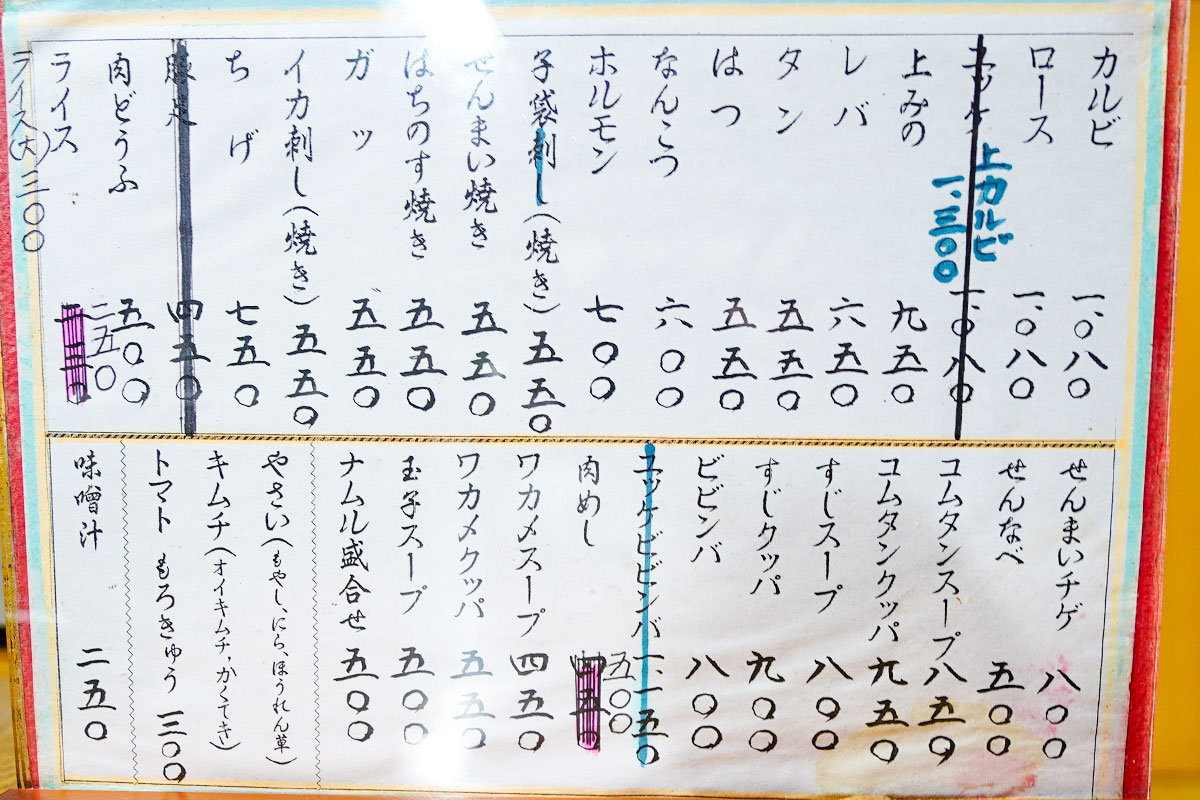 カルビ 一、〇八〇
ロース 一、〇八〇
上カルビ 一、三〇〇
ユッケ 一、〇八〇
上みの 九五〇
レバ 六五〇
タン 五五〇
はつ 五五〇
なんこつ 六〇〇
ホルモン 七〇〇
子袋刺し(焼き) 五五〇
せんまい焼き 五五〇
はちのす焼き 五五〇
ガッ 五五〇
イカ刺し(焼き) 五五〇
ちげ 七五〇
豚足 四五〇
肉どうふ 五〇〇
ライス 二五〇
ライス(大)三〇〇
せんまいチゲ 八〇〇
せんなべ 五〇〇
コムタンスープ 八五〇
コムタンクッパ 九五〇
すじスープ 八〇〇
すじクッパ 九〇〇
ビビンバ 八〇〇
ユッケビビンバ 一、一五〇
肉めし 五〇〇
四五〇
ワカメスープ 四五〇
ワカメクッパ 五五〇
玉子スープ 五〇〇
ナムル盛合せ 五〇〇
やさい(もやし、にら、ほうれん草)
キムチ(オイキムチ,かくてき)
トマト もろきゅう 三〇〇
味噌汁 二五〇